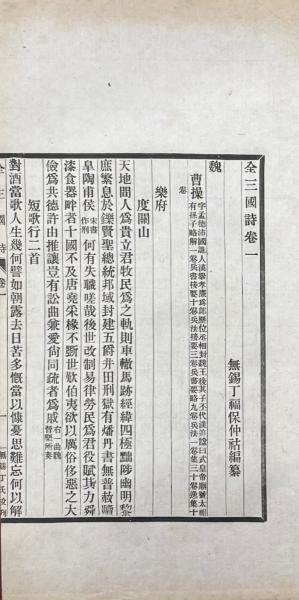 全三國詩卷一
無錫丁福保仲祜編纂
魏
曹操
字孟德沛國譙人漢舉孝廉爲郎歷位丞相封魏王後其子丕代漢追諡曰武皇帝廟號太祖
有孫子略解一卷兵書接要十卷兵法接要三卷兵書要略九卷兵法一卷集三十卷逸集十
卷
樂府
度關山
天地間人爲貴立君牧民爲之軌則車轍馬跡經緯四極黜陟幽明黎
庶繁息於鑠賢聖總統邦域封建五爵井田刑獄有燔丹書無普赦贖
皐陶甫侯宋書作刑何有失職嗟哉後世改制易律勞民爲君役賦其力舜
漆食器畔者十國不及唐堯采椽不斵世歎伯夷欲以厲俗侈惡之大
儉爲共德許由推讓豈有訟曲兼愛尙同疏者爲戚右一曲魏晉樂所奏
短歌行二首
對酒當歌人生幾何譬如朝露去日苦多慨當以慷憂思難忘何以解
全三國詩 卷一 一 無錫丁氏校刊